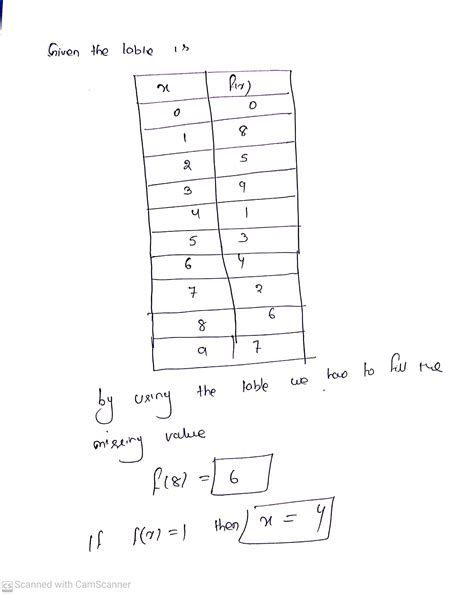 Given the table is
x f(x)
0 0
1 8
2 5
3 9
4 1
5 3
6 4
7 2
8 6
9 7
by using the table we has to fill the
missing value
f(8) = 6
If f(x) = 1 then x = 4
CS Scanned with CamScanner